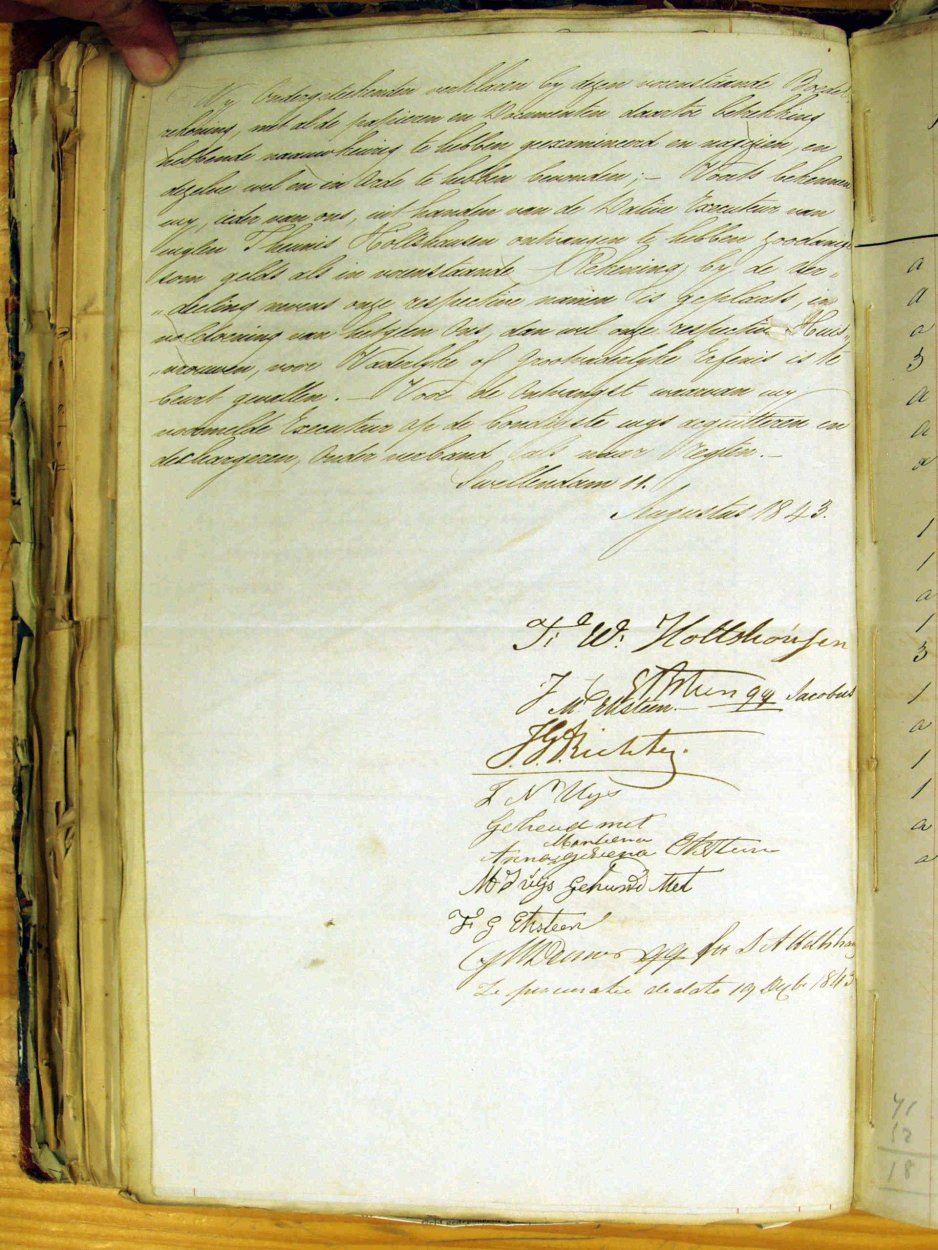 Wy Ondergetekenden verklaren by dezen voorenstaande Boedel
rekening, met al de papieren en Documenten daartoe betrekking
hebbende naauwkeurig te hebben geexamineerd en nagezien, en
dezelve wel en in orde te hebben bevonden; – Voorts bekennen
wy, ieder van ons, uit handen van de Datieve Executeur van
wylen Theunis Holtshausen ontvangen te hebben zoodanige
som gelds als in voorenstaande Rekening, by de Ver„
„deeling nevens onze respective namen is geplaatst, in
voldoening van hetgeen Ons, dan wel onze respective Huis„
„vrouwen, voor Vaderlyke of Grootvaderlyke Erfenis is te
beurt gevallen. – Voor de Ontvangst waarvan wy
voormelde Executeur op de bondigste wys acquitteren en
dechargeren, Onder verband als naar Regten. –
Swellendam 11.
Augustus 1843.
W. Holtshousen
Eksteen qq Jacobus
Ms Eksteen
Richter.
Uys
Gehuwd met
Martiena
Anna Eksteen
Uys Gehuwd Met
G Eksteen
qq for
procuratie de dato 19 1843
a
a
a
3
a
a
a
1
1
a
1
3
1
a
1
1
a
a
71
52
18